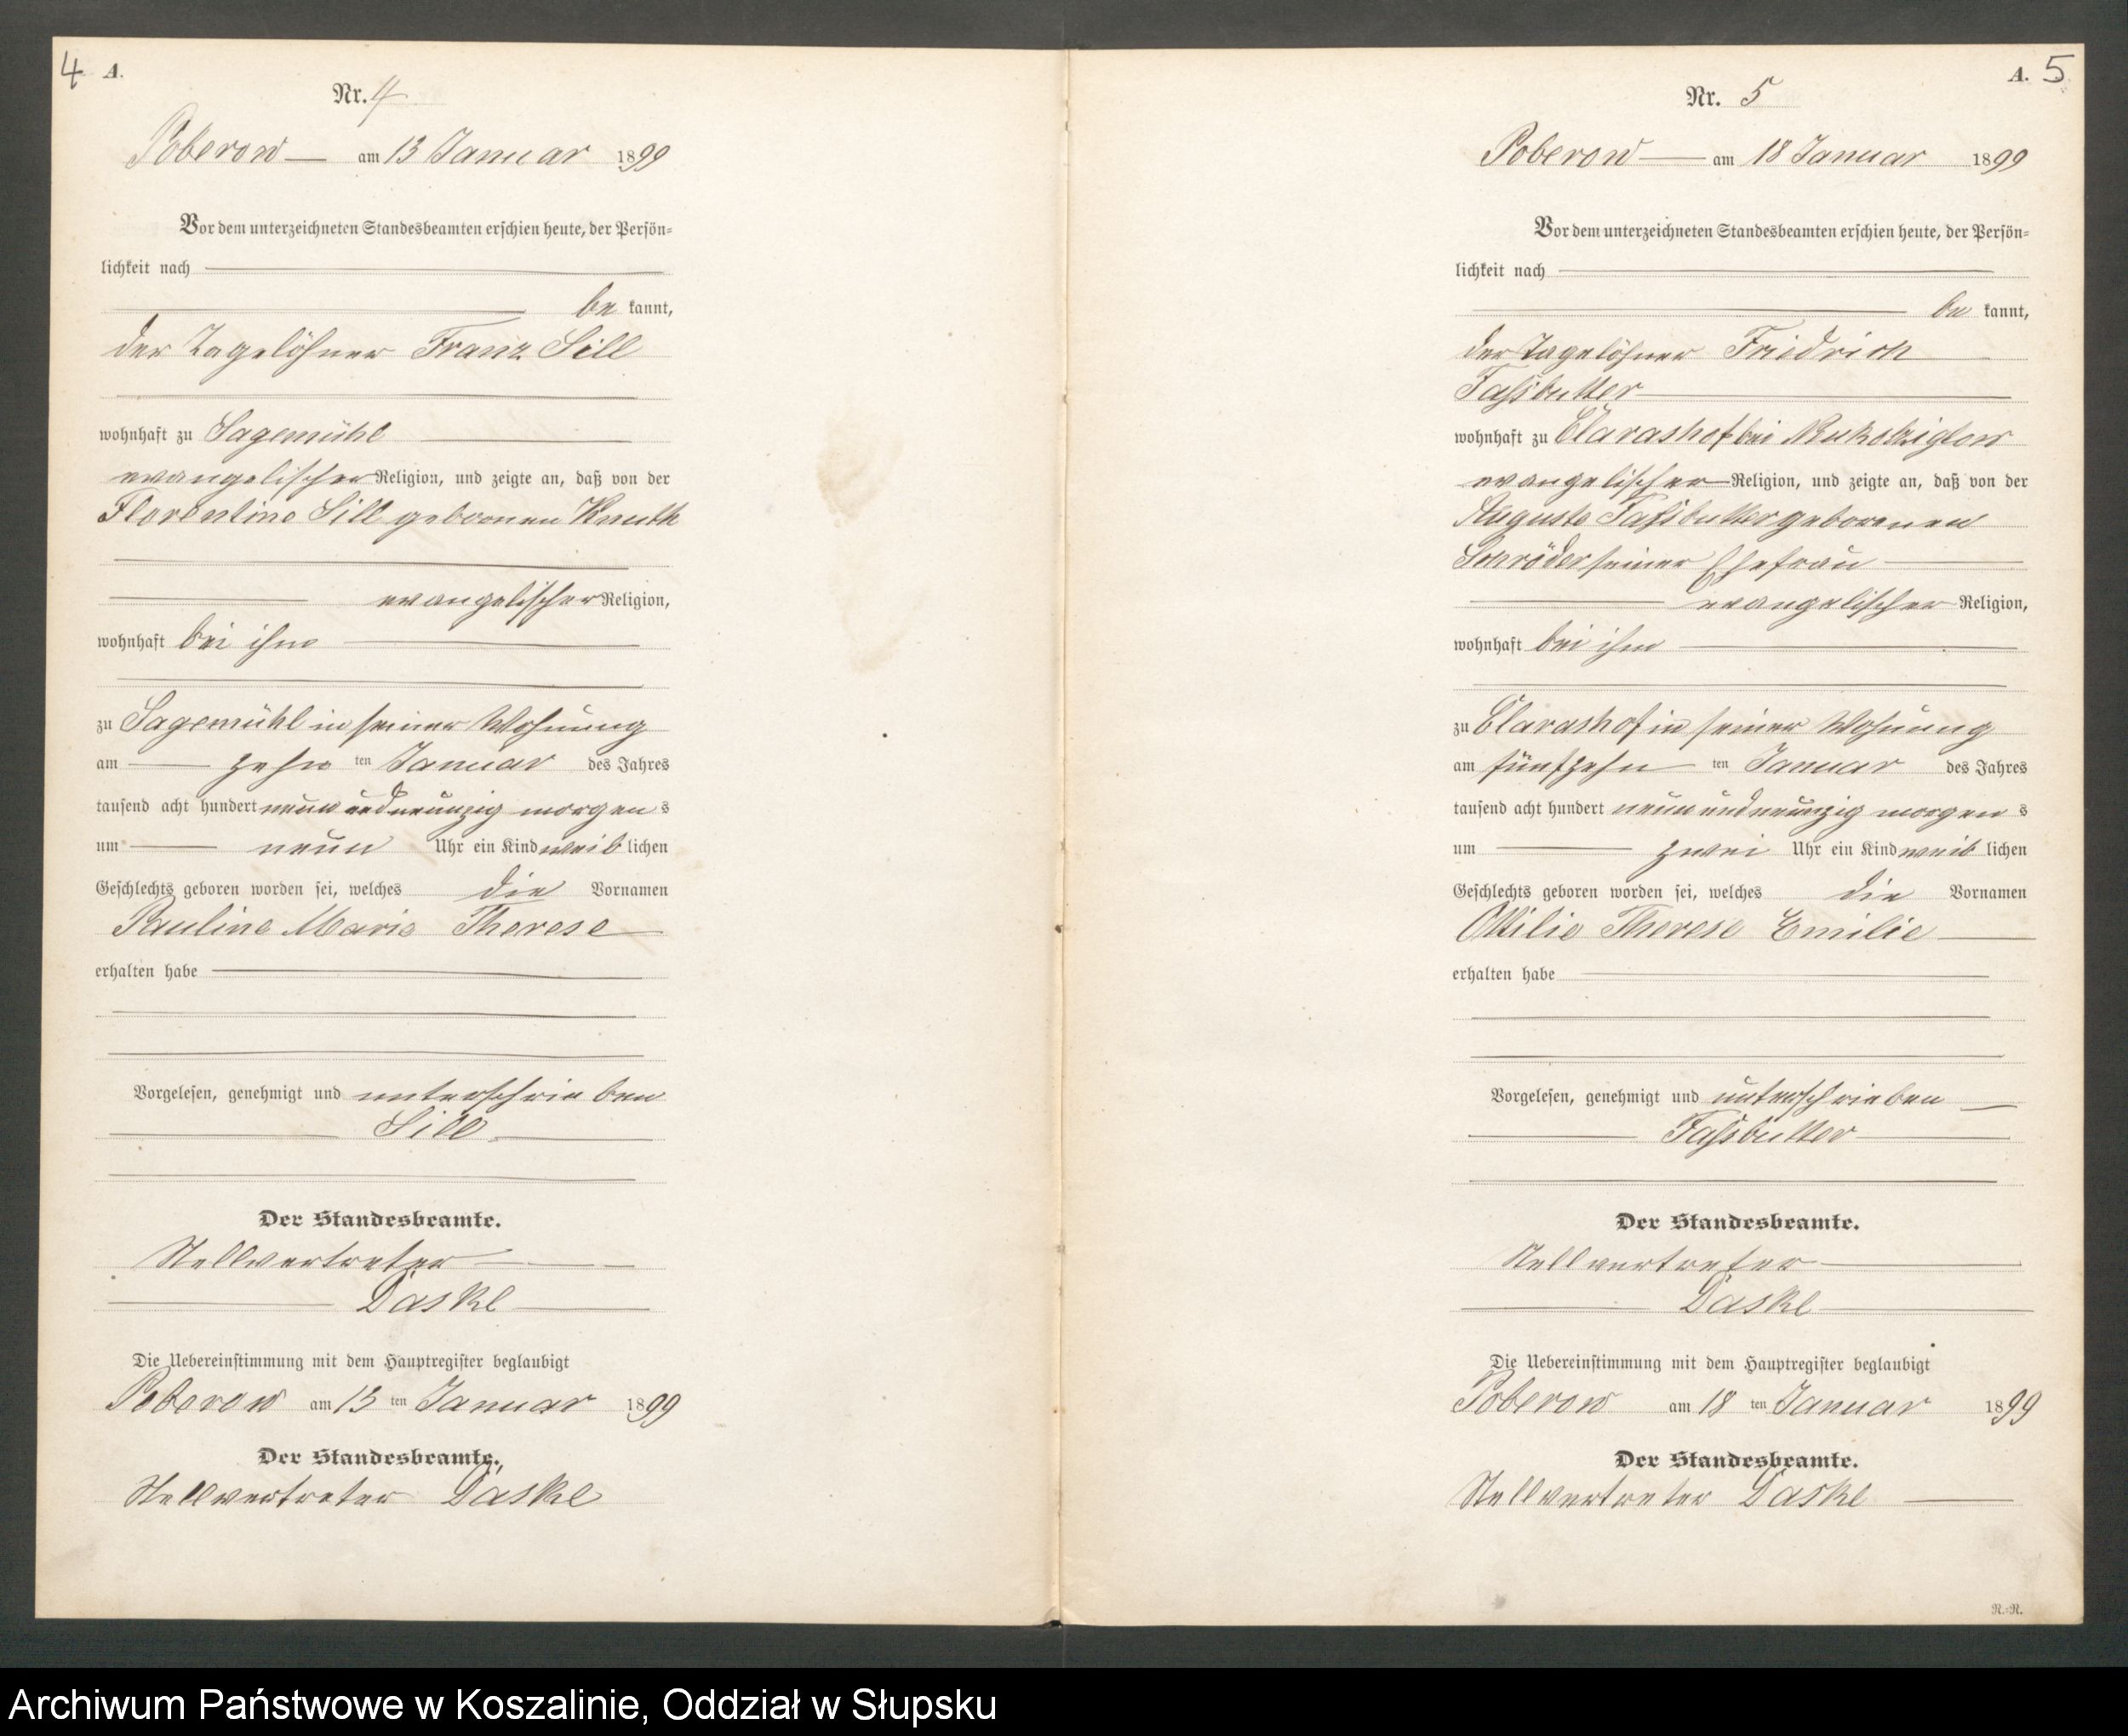 4 A.
Nr. 4
Poberow am 13 Januar 1899
Vor dem unterzeichneten Standesbeamten erschien heute, der Persön-
lichkeit nach
be kannt,
der Tagelöhner Franz Sill
wohnhaft zu Sagemühl
evangelischer Religion, und zeigte an, daß von der
Florentine Sill geborenen Knuth
evangelischer Religion,
wohnhaft bei ihm
zu Sagemühl in seiner Wohnung
am zehn ten Januar des Jahres
tausend acht hundert neun und neunzig morgen s
um neun Uhr ein Kind weib lichen
Geschlechts geboren worden sei, welches die Vornamen
Pauline Marie Therese
erhalten habe
Vorgelesen, genehmigt und unterschrieben
Sill
Der Standesbeamte.
Stellvertreter
Daske
Die Uebereinstimmung mit dem Hauptregister beglaubigt
Poberow am 13 ten Januar 1899
Der Standesbeamte.
Stellvertreter Daske
A. 5
Nr. 5
Poberow am 18 Januar 1899
Vor dem unterzeichneten Standesbeamten erschien heute, der Persön-
lichkeit nach
be kannt,
der Tagelöhner Friedrich
Fassbutter
wohnhaft zu Clarashof bei
evangelischer Religion, und zeigte an, daß von der
Auguste Fassbutter geborenen
Schröder seiner Ehefrau
evangelischer Religion,
wohnhaft bei ihm
zu Clarashof in seiner Wohnung
am fünfzehn ten Januar des Jahres
tausend acht hundert neun und neunzig morgen s
um zwei Uhr ein Kind weib lichen
Geschlechts geboren worden sei, welches die Vornamen
Ottilie Therese Emilie
erhalten habe
Vorgelesen, genehmigt und unterschrieben
Fassbutter
Der Standesbeamte.
Stellvertreter
Daske
Die Uebereinstimmung mit dem Hauptregister beglaubigt
Poberow am 18 ten Januar 1899
Der Standesbeamte.
Stellvertreter Daske
R.-R.
Archiwum Państwowe w Koszalinie, Oddział w Słupsku